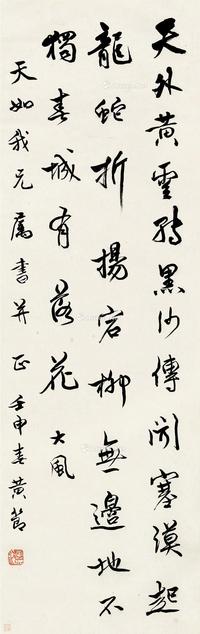 天外黃雲轉黑沙傳聞塞漠起
龍蛇折揚宕柳無邊地不
獨春城有落花 大風
天如我兄屬書并正 壬申春黃節